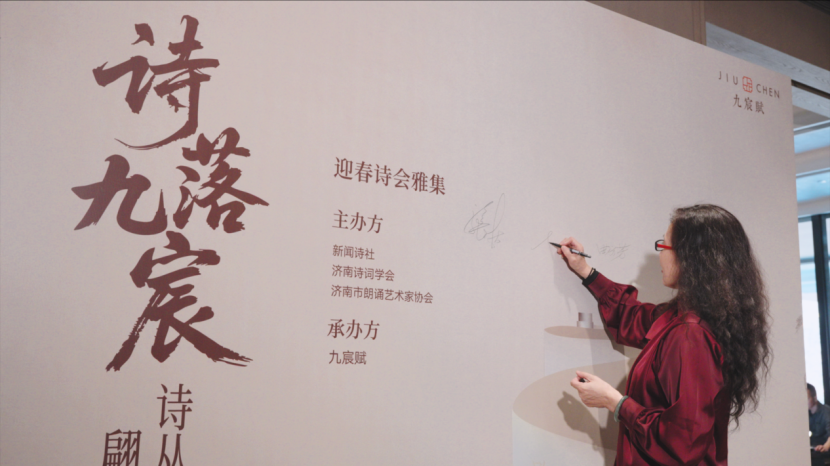 诗落九宸
诗从
翩
迎春诗会雅集
主办方
新闻诗社
济南诗词学会
济南市朗诵艺术家协会
承办方
九宸赋
JIU CHEN
九宸赋